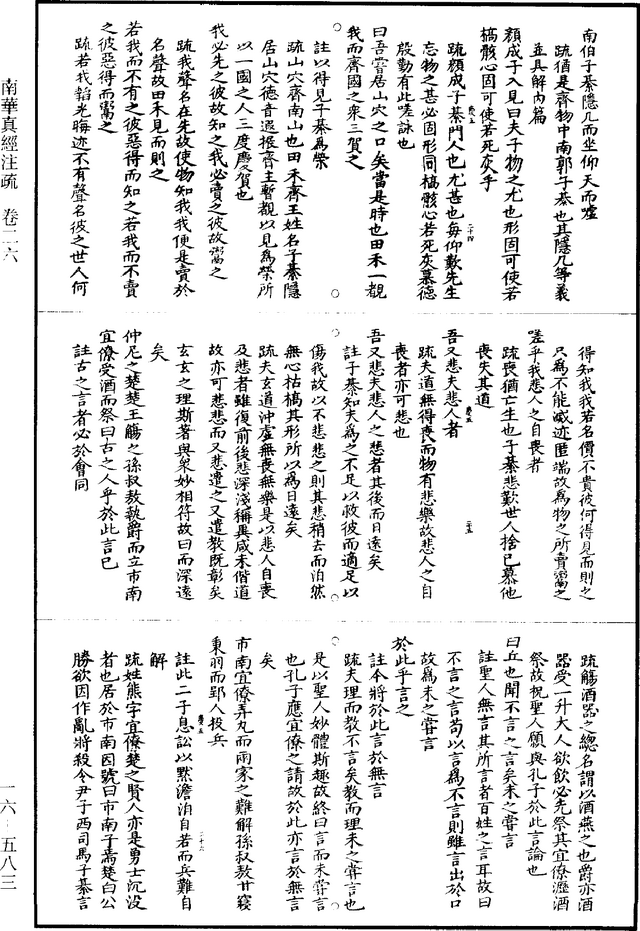 南華真經注疏　卷二六
一六‧五八三
南伯子綦隱几而坐仰天而噓
疏猶是齊物中南郭子綦也其隱几等義
並具解內篇
顏成子入見曰夫子物之尤也形固可使若
槁骸心固可使若死灰乎
疏顏成子綦門人也尤甚也每仰歎先生
忘物之甚必固形同槁骸心若死灰慕德
殷勤有此嗟詠也
曰吾嘗居山穴之口矣當是時也田禾一覩
我而齊國之衆三賀之
註以得見子綦爲榮
疏山穴齊南山也田禾齊王姓名子綦隱
居山穴德音遐振齊王暫覩以見爲榮所
以一國之人三度慶賀也
我必先之彼故知之我必賣之彼故鬻之
疏我聲名在先故使物知我我便是賣於
名聲故田禾見而則之
若我而不有之彼惡得而知之若我而不賣
之彼惡得而鬻之
疏若我韜光晦迹不有聲名彼之世人何
得知我我若名價不貴彼何得見而則之
只爲不能滅迹匿端故爲物之所賣鬻之
嗟乎我悲人之自喪者
疏喪猶亡生也子綦悲歎世人捨己慕他
喪失其道
吾又悲夫悲人者
疏夫道無得喪而物有悲樂故悲人之自
喪者亦可悲也
吾又悲夫悲人之悲者其後而日遠矣
註子綦知夫爲之不足以救彼而適足以
傷我故以不悲悲之則其悲稍去而泊然
無心枯槁其形所以爲日遠矣
疏夫玄道冲虛無喪無樂是以悲人自喪
及悲者雖復前後悲深淺稱異咸未偕道
故亦可悲悲而又悲遣之又遣教既彰矣
玄玄之理斯著與衆妙相符故曰而深遠
矣
仲尼之楚楚王觴之孫叔敖執爵而立市南
宜僚受酒而祭曰古之人乎於此言已
註古之言者必於會同
疏觴酒器之總名謂以酒燕之也爵亦酒
器受一升大人欲飲必先祭其宜僚瀝酒
祭故祝聖人願與孔子於此言論也
曰丘也聞不言之言矣未之嘗言
註聖人無言其所言者百姓之言耳故曰
不言之言苟以言爲不言則雖言出於口
故爲未之嘗言
於此乎言之
註今將於此言於無言
疏夫理而教不言矣教而理未之嘗言也
是以聖人妙體斯趣故終日言而未嘗言
也孔子應宜僚之請故於此亦言於無言
矣
市南宜僚弄丸而兩家之難解孫叔敖甘寢
秉羽而郢人投兵
註此二子息訟以默澹泊自若而兵難自
解
疏姓熊字宜僚楚之賢人亦是勇士沉没
者也居於市南因號曰市南子焉楚白公
勝欲因作亂將殺令尹子西司馬子綦言